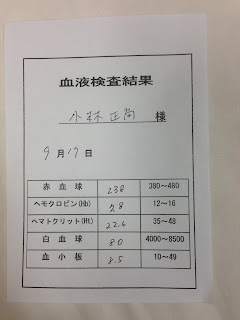 血液検査結果
小林正尚 様
9月17日
赤血球 238 380～480
ヘモクロビン(Hb) 7.8 12～16
ヘマトクリット(Ht) 22.6 35～48
白血球 80 4000～8500
血小板 8.5 10～49